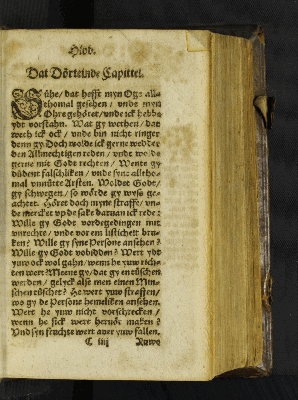 Hiob.
Dat Dörteinde Capittel.
Sühe/ dat hefft myn Oge all-
thomal gesehen / vnde myn
Ohre gehöret/ vnde ick hebbe
ydt vorstahn. Wat gy wethen / dat
weth ick ock / vnde bin nicht ringer
denn gy Doch wolde ick gerne wedder
den Allmechtigen reden / vnde wolde
gerne mit Gode rechten / Wente gy
düdent falschliken / vnde synt altho-
mal vnnütte Arsten. Woldet Godt/
gy schwegen / so wörde gy wyß ge-
achtet. Höret doch myne straffe/ vn-
de mercket vp de sake daruan ick rede:
Wille gy Godt vordegedingen mit
vnrechte / vnde vor em listicheit bru-
ken? Wille gy syne Persone ansehen?
Wille gy Godt vorbidden? Wert ydt
yuw ock wol gahn/ wenn he yuw rich-
ten wert? Meene gy/ dat gy en tüschen
werden / gelyck alse men einen Min-
schen tüschet? He wert yuw straffen/
wo gy de Persone hemeliken ansehen.
Wert he yuw nicht vorschrecken /
wenn he sick wert heruör maken?
Vnd syn fruchte wert auer yuw fallen.
C iiij Yuwe